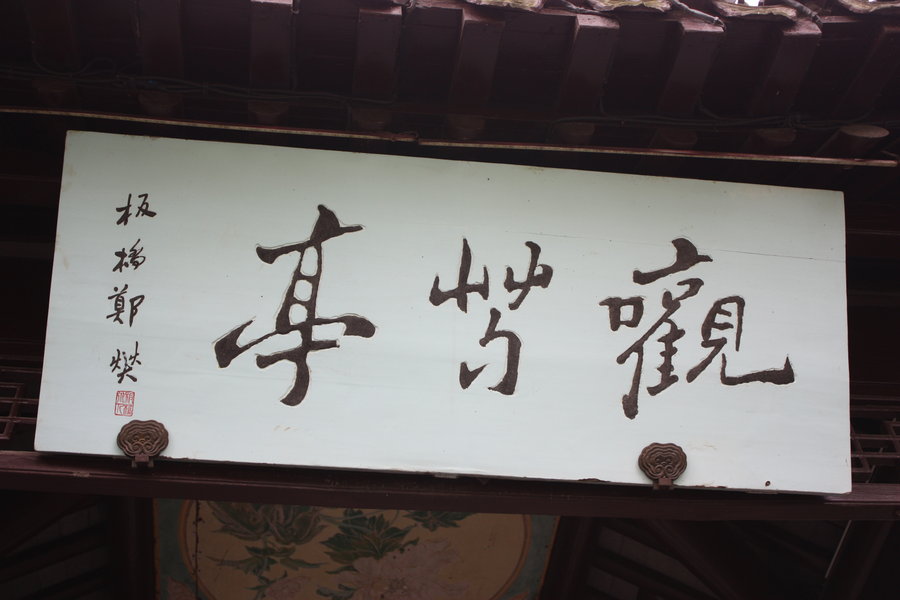 觀芍亭
板橋鄭燮